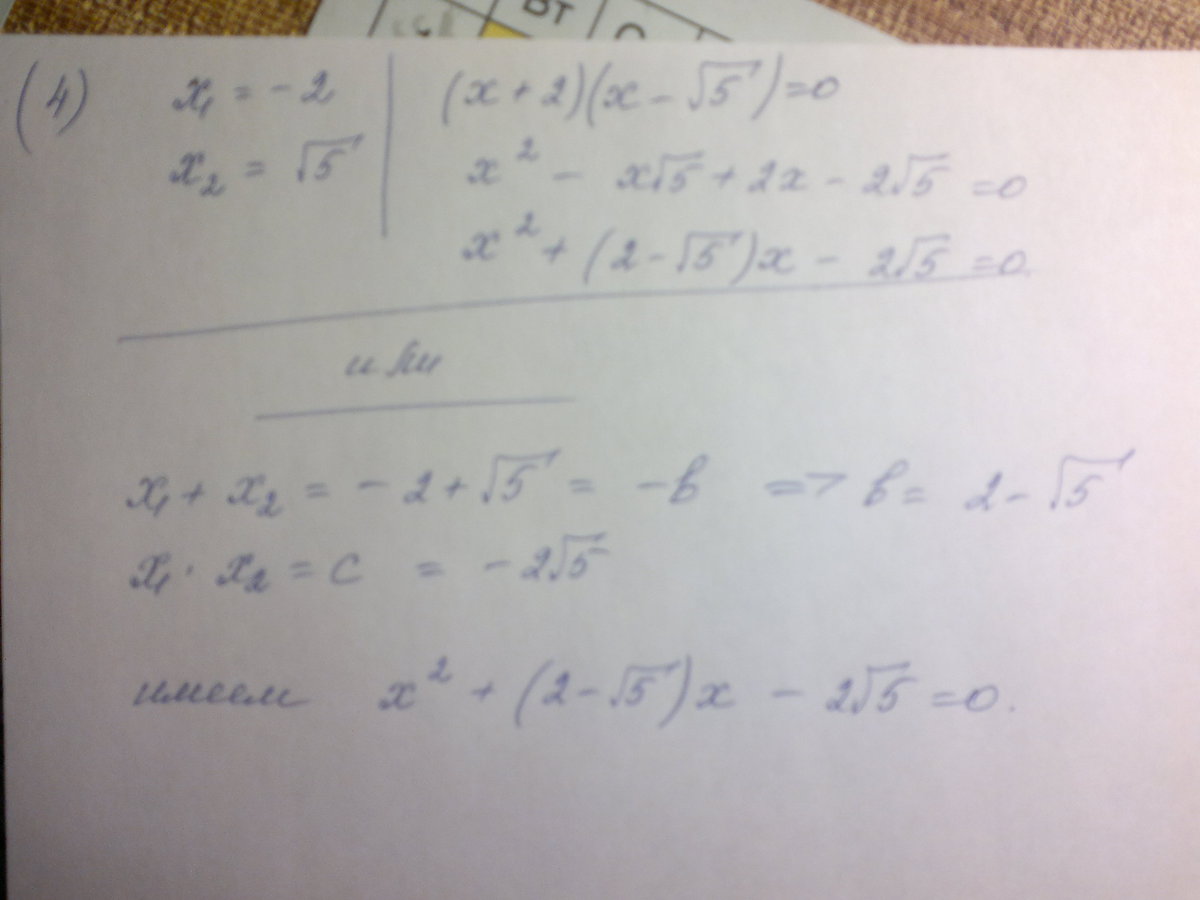 ВТ
(4) x₁ = -2 | (x + 2)(x - √5) = 0
x₂ = √5 | x² - x√5 + 2x - 2√5 = 0
x² + (2 - √5)x - 2√5 = 0.
или
x₁ + x₂ = - 2 + √5 = -b => b = 2 - √5
x₁ · x₂ = c = - 2√5
имеем x² + (2 - √5)x - 2√5 = 0.